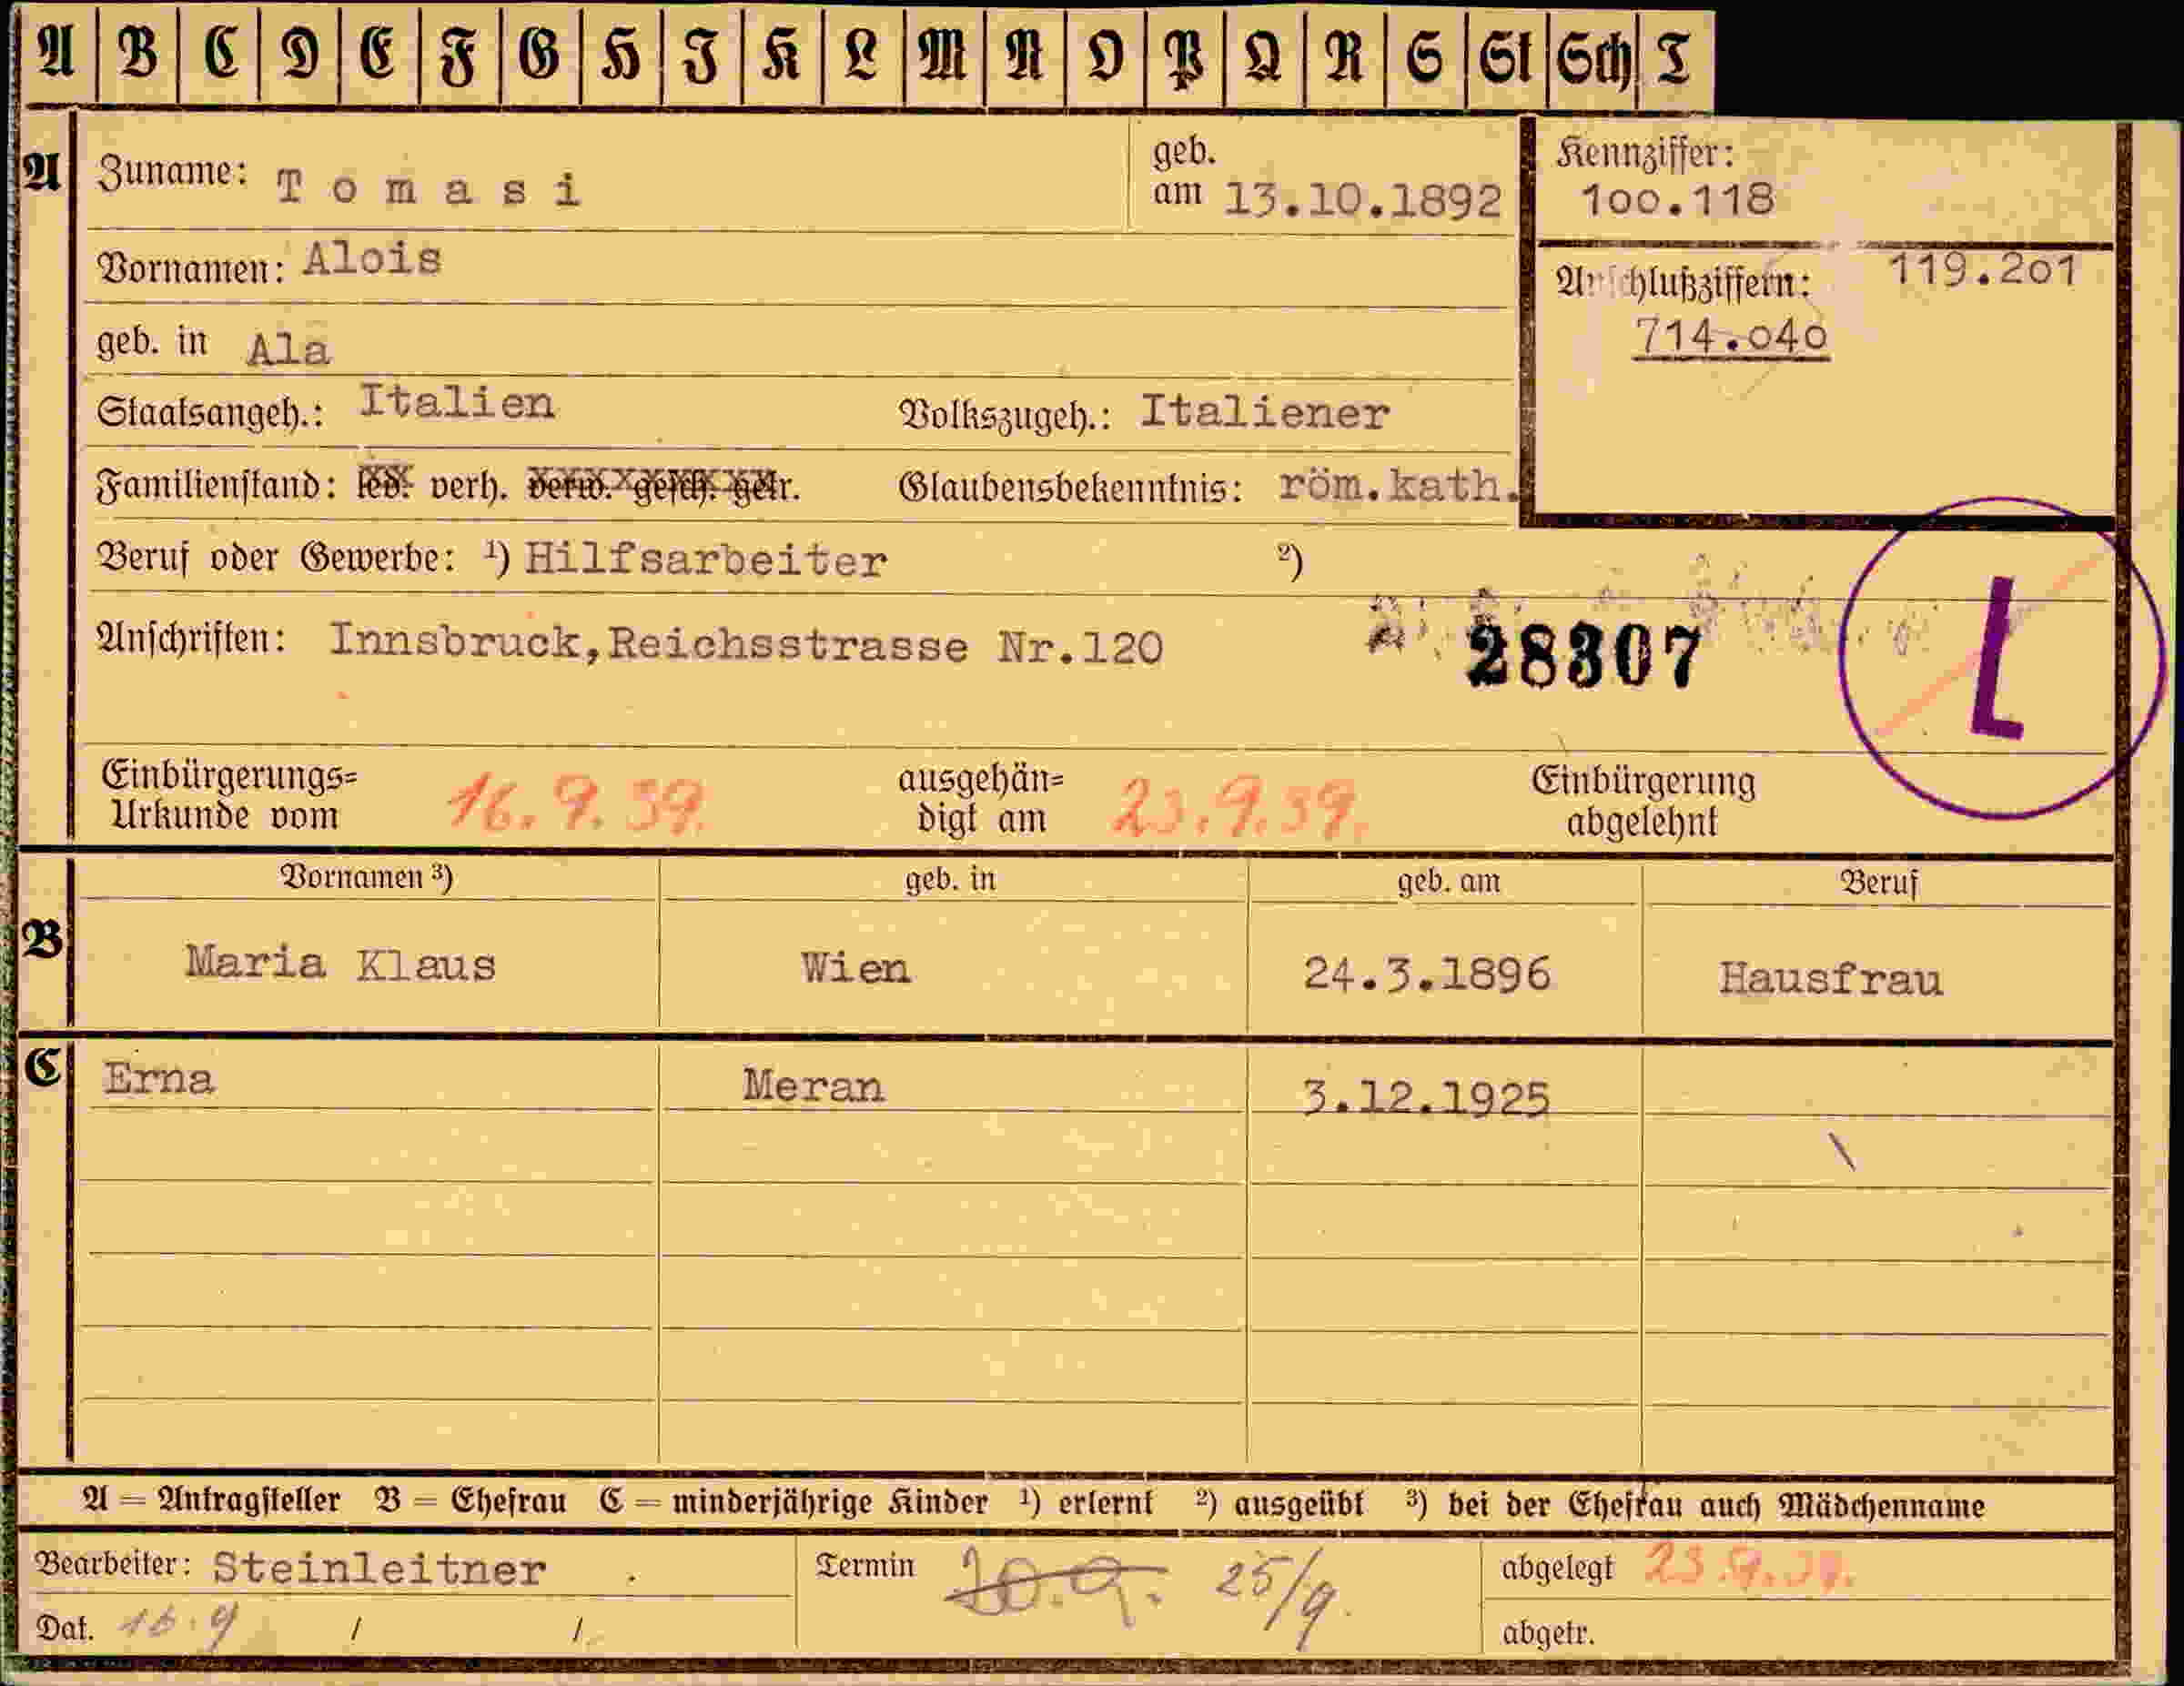 A B C D E F G H I K L M N O P Q R S St Sch T
A Zuname: Tomasi geb. am 13.10.1892
Kennziffer: 100.118
Vornamen: Alois
Anschlußziffern: 119.201
714.040
geb. in Ala
Staatsangeh.: Italien Volkszugeh.: Italiener
Familienstand: led. verh. verw. gesch. getr. Glaubensbekenntnis: röm.kath.
Beruf oder Gewerbe: ¹) Hilfsarbeiter ²)
Anschriften: Innsbruck,Reichsstrasse Nr.120 28307 L
Einbürgerungs= ausgehän= Einbürgerung
Urkunde vom 16.9.39. digt am 23.9.39. abgelehnt
Vornamen ³) geb. in geb. am Beruf
B Maria Klaus Wien 24.3.1896 Hausfrau
C Erna Meran 3.12.1925
A = Antragsteller B = Ehefrau C = minderjährige Kinder ¹) erlernt ²) ausgeübt ³) bei der Ehefrau auch Mädchenname
Bearbeiter: Steinleitner Termin 20.9. 25/9. abgelegt 23.9.39.
Dat. 16.9 / / abgetr.